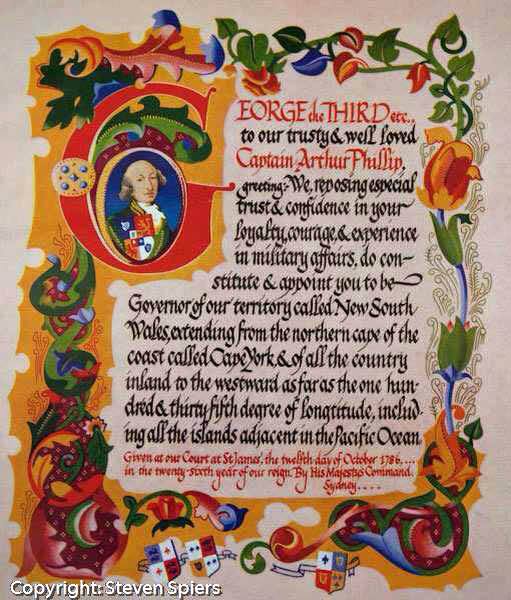 GEORGE the THIRD etc..,
to our trusty & well loved
Captain Arthur Phillip,
greeting:- We, reposing especial
trust & confidence in your
loyalty, courage, & experience
in military affairs, do con-
stitute & appoint you to be
Governor of our territory called New South
Wales, extending from the northern cape of the
coast called Cape York & of all the country
inland to the westward as far as the one hun-
dred & thirty fifth degree of longtitude, includ-
ing all the islands adjacent in the Pacific Ocean
Given at our Court at St James, the twelfth day of October 1786....
in the twenty-sixth year of our reign. By His Majestys Command.
Sydney....
Copyright: Steven Spiers